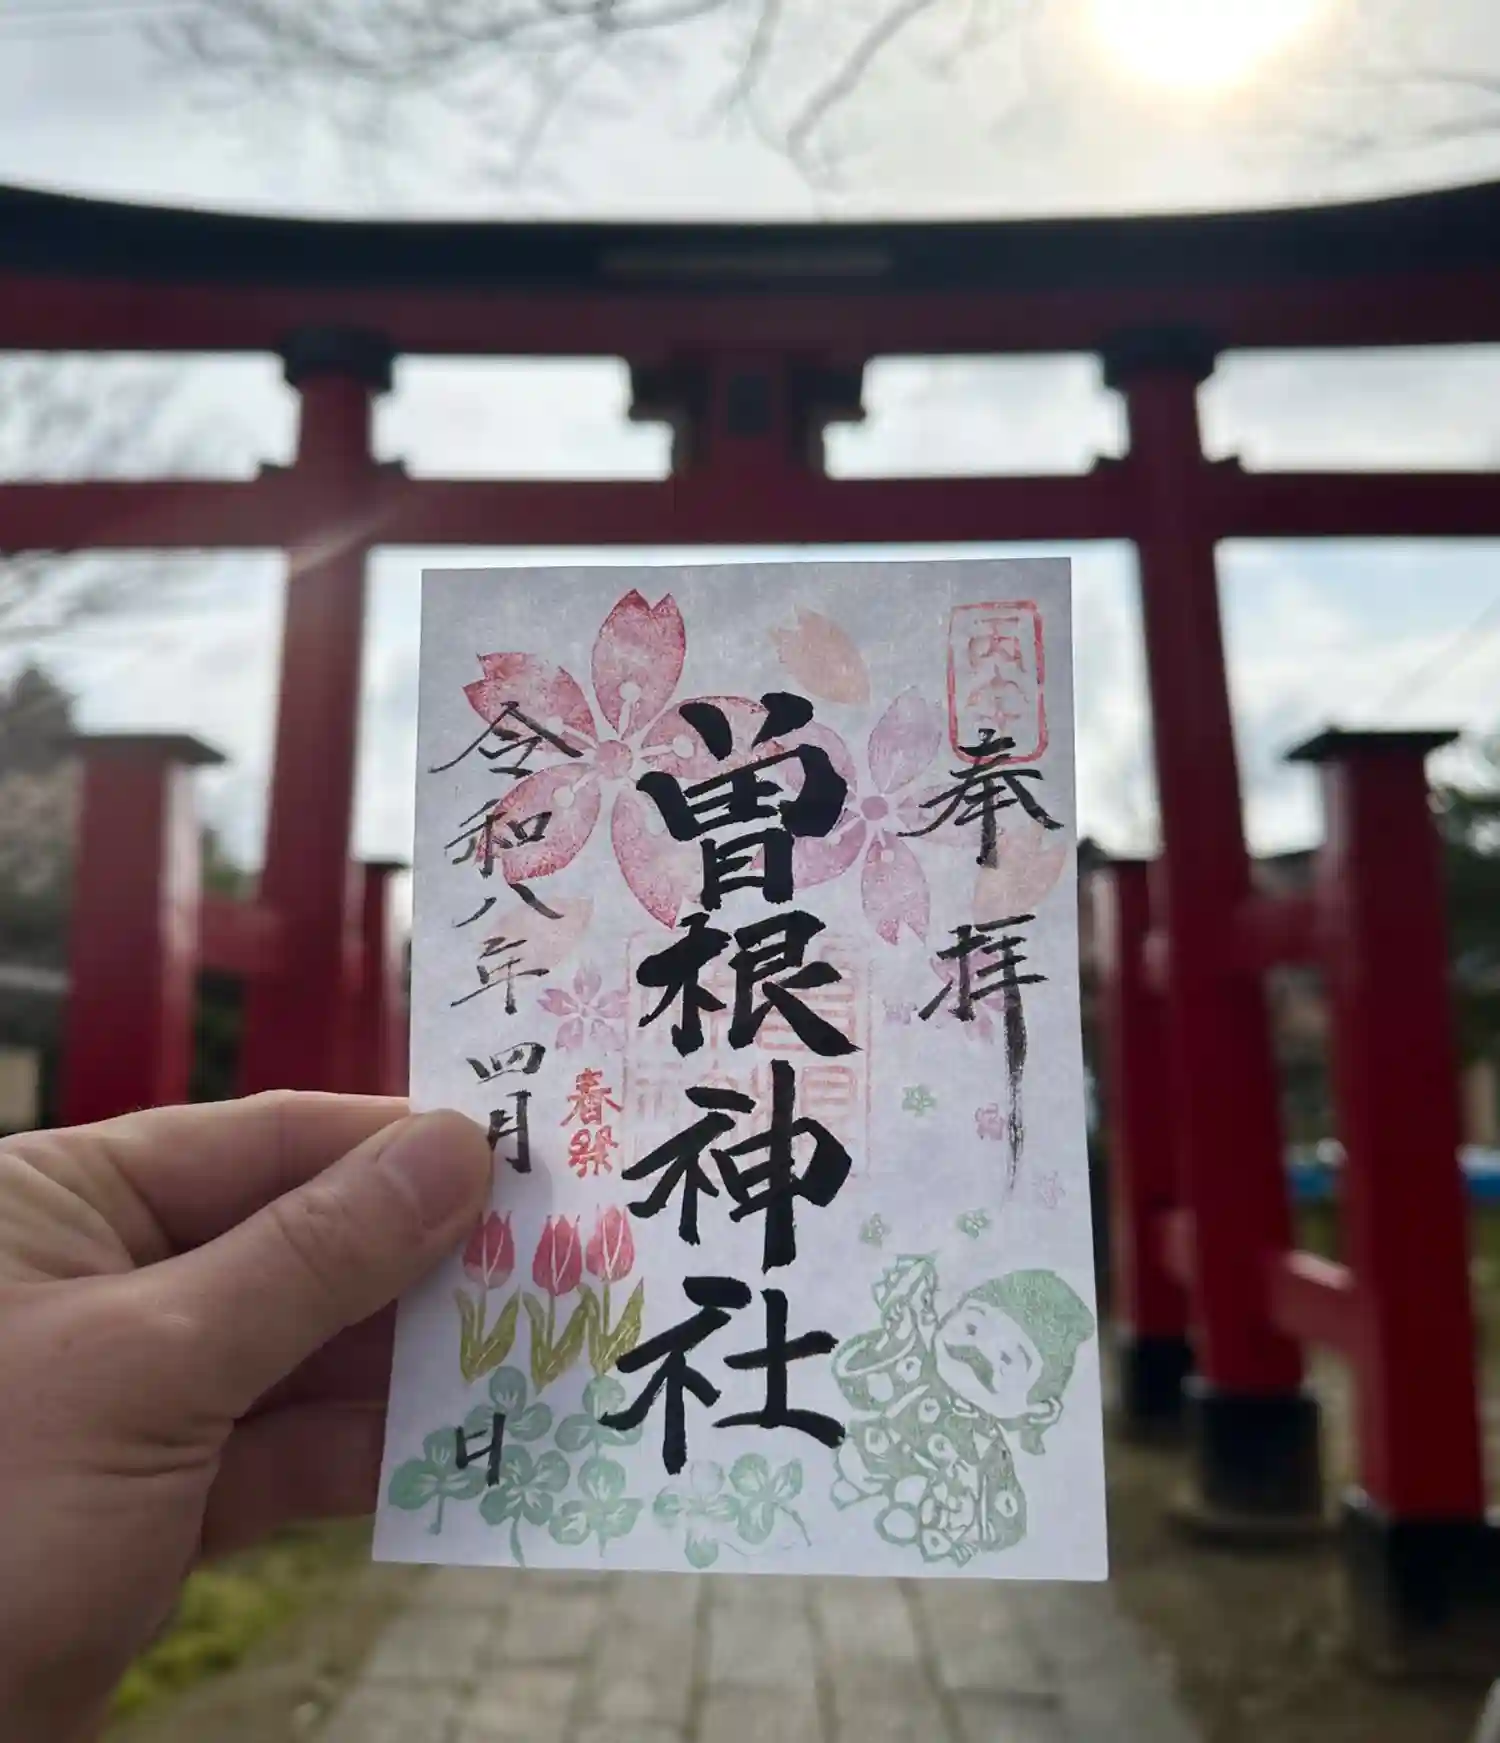 丙午
奉拝
曽根神社
春祭
令和八年四月 日